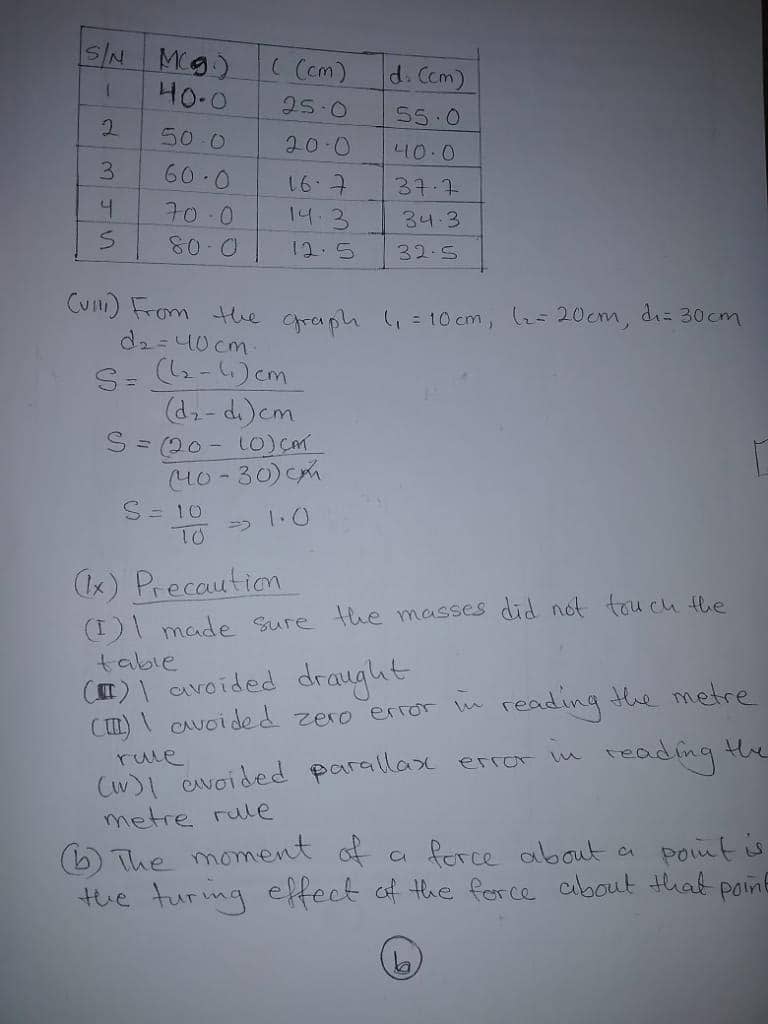 S/N M(g.) l (cm) d. (cm)
1 40.0 25.0 55.0
2 50.0 20.0 40.0
3 60.0 16.7 37.7
4 70.0 14.3 34.3
5 80.0 12.5 32.5
(viii) From the graph l₁ = 10cm, l₂ = 20cm, d₁ = 30cm
d₂ = 40cm.
S = (l₂ - l₁)cm
(d₂ - d₁)cm
S = (20 - 10)cm
(40 - 30)cm
S = 10
10 => 1.0
(ix) Precaution
(I) I made sure the masses did not touch the
table
(II) I avoided draught
(III) I avoided zero error in reading the metre
rule
(iv) I avoided parallax error in reading the
metre rule
(b) The moment of a force about a point is
the turing effect of the force about that point
6